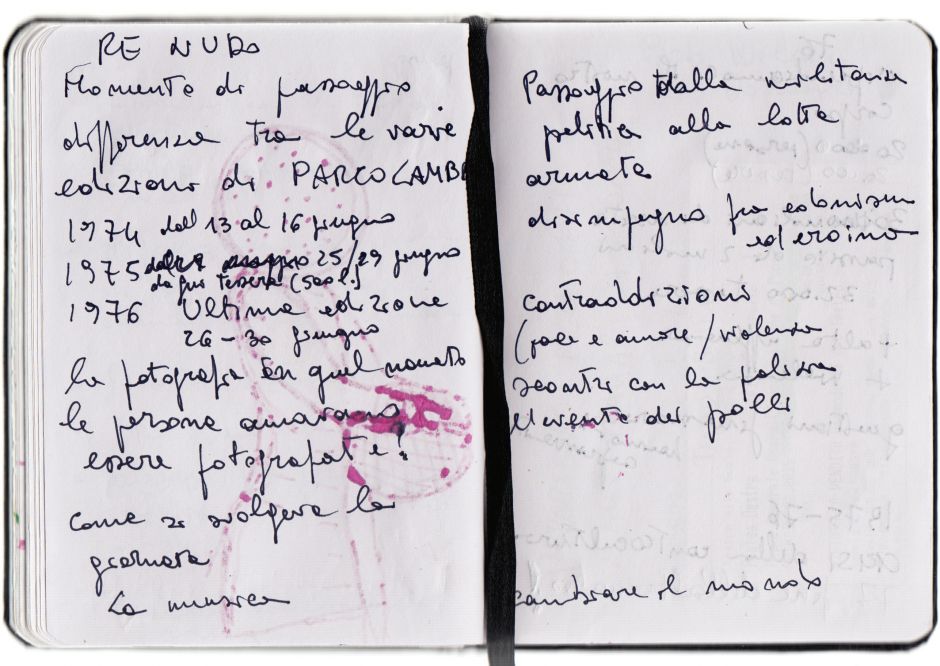 RE NUDO
Momento di passaggio
differenza tra le varie
edizioni di PARCO LAMBR
1974 dal 13 al 16 giugno
1975 25/29 giugno
da qui tessera (500 l.)
1976 Ultima edizione
26 - 30 giugno
la fotografia in quel momento
le persone amavano
essere fotografate?
come si svolgeva la
giornata
La musica
Passaggio dalla militanza
politica alla lotta
armata
disimpegno fra edonismo
ed eroina
contraddizioni
(pace e amore / violenza
scontri con la polizia
l'evento dei polli
cambiare il mondo